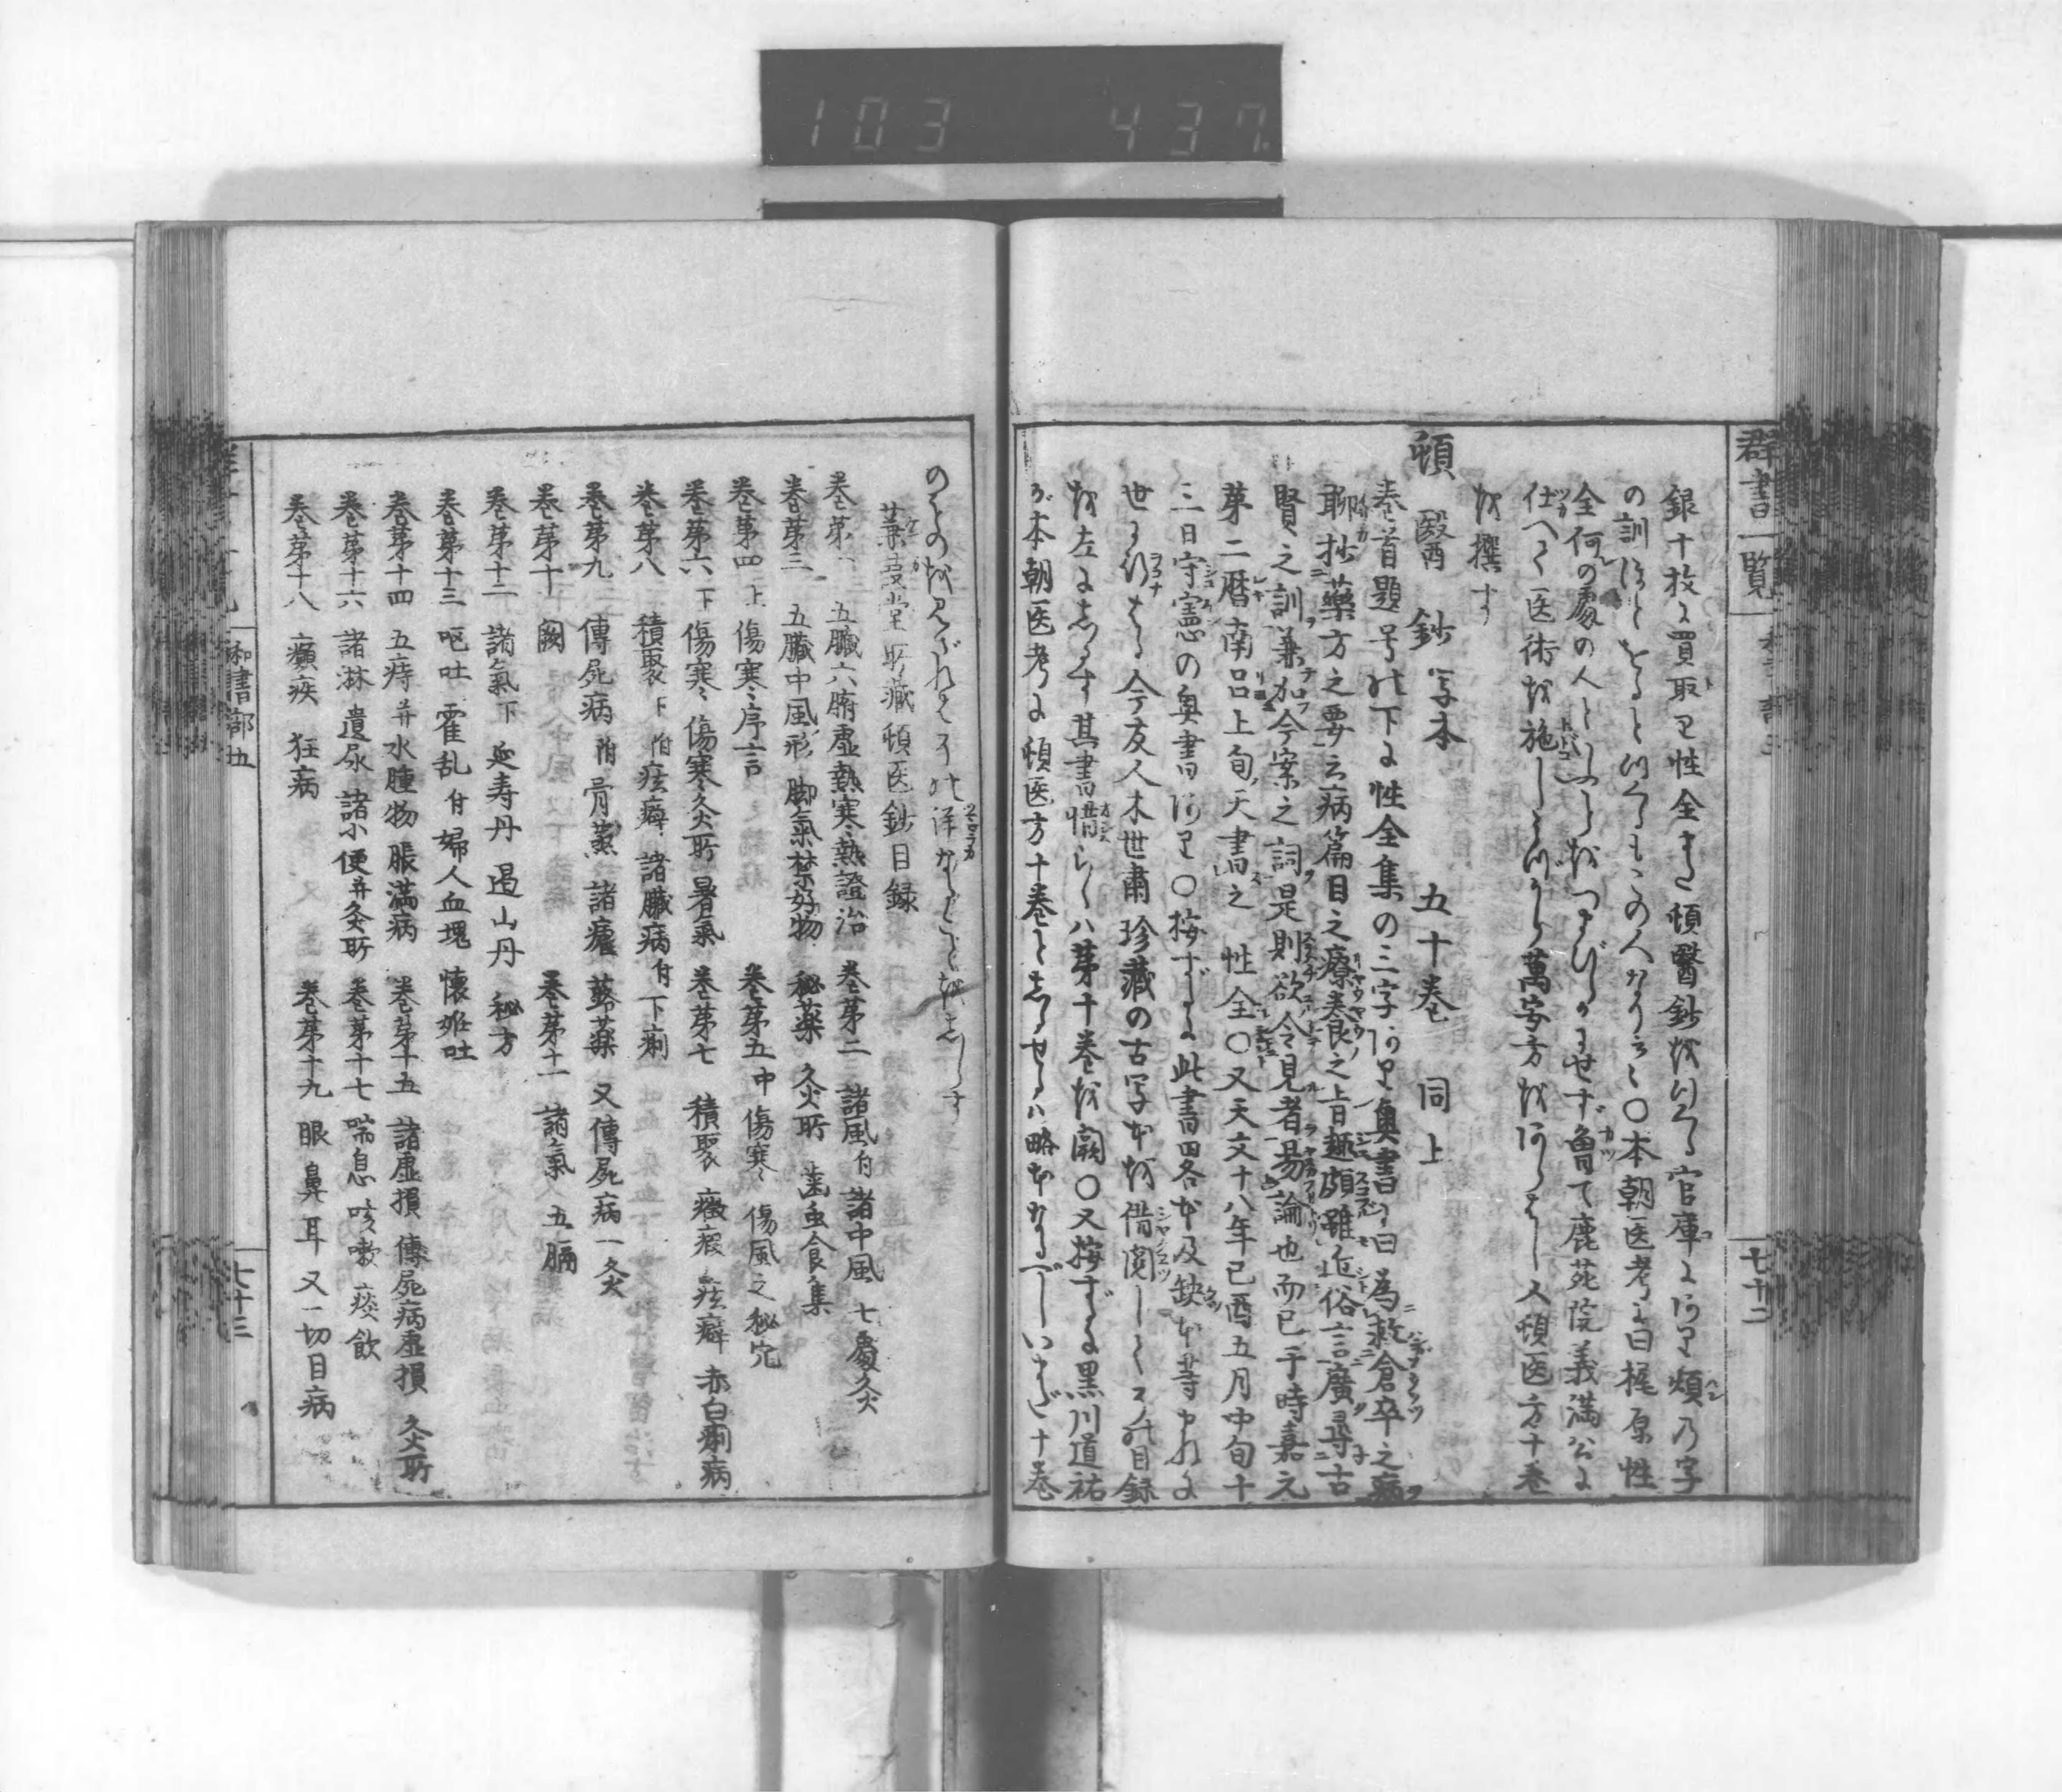 103 437
群書一覧
七十二
銀十枚に買取り性全また頓醫鈔を
官庫にあり頗の字
の訓
本朝医考に曰梶原性
全何の處の人と
せず曽て鹿苑院義満公に
仕へて医術を施し
萬安方を
又頓医方十巻
を撰す
頓醫鈔 写本 五十巻 同上
巻首題号の下に性全集の三字あり奥書に曰為救倉卒之病
聊抄藥方之要云病篇目之療養之旨趣頗雖近俗言廣尋古
賢之訓兼加今案之詞是則欲令見者易論也而已于時嘉元
第二暦南呂上旬天書之 性全〇又天文十八年己酉五月中旬十
三日守憲の奥書あり〇按ずるに此書田各本及缺本等
世に行はる今友人木世肅珍藏の古写本を借閲して其目録
を左にしるす其書惜らくハ第十巻を闕〇又按ずるに黒川道祐
が本朝医考に頓医方十巻としるせるハ略本なるべしいまだ十巻
のものを見ざれば其詳なることを
蒹葭堂所藏頓医鈔目録
巻第一 五臓六腑虚熱寒熱證治 巻第二 諸風付諸中風 七處灸
巻第三 五臓中風形 脚氣禁好物 秘薬 灸所 歯虫食集
巻第四上 傷寒序言 巻第五中 傷寒 傷風之秘穴
巻第六下 傷寒 傷寒灸所 暑氣 巻第七 積聚 癥瘕 痃癖 赤白痢病
巻第八 積聚下付痃癖 諸臓病付下痢
巻第九 傳屍病付骨蒸 諸瘧 薬 又傳屍病一灸
巻第十 闕 巻第十一 諸氣 五膈
巻第十二 諸氣下 延寿丹 過山丹 秘方
巻第十三 嘔吐 霍乱付婦人血塊 懐妊吐
巻第十四 五痔并水腫物 脹滿病 巻第十五 諸虚損 傳屍病虚損 灸所
巻第十六 諸淋 遺尿 諸小便并灸所 巻第十七 喘息 咳嗽 痰飲
巻第十八 癩疾 狂病 巻第十九 眼 鼻 耳 又一切目病
和書部五
七十三